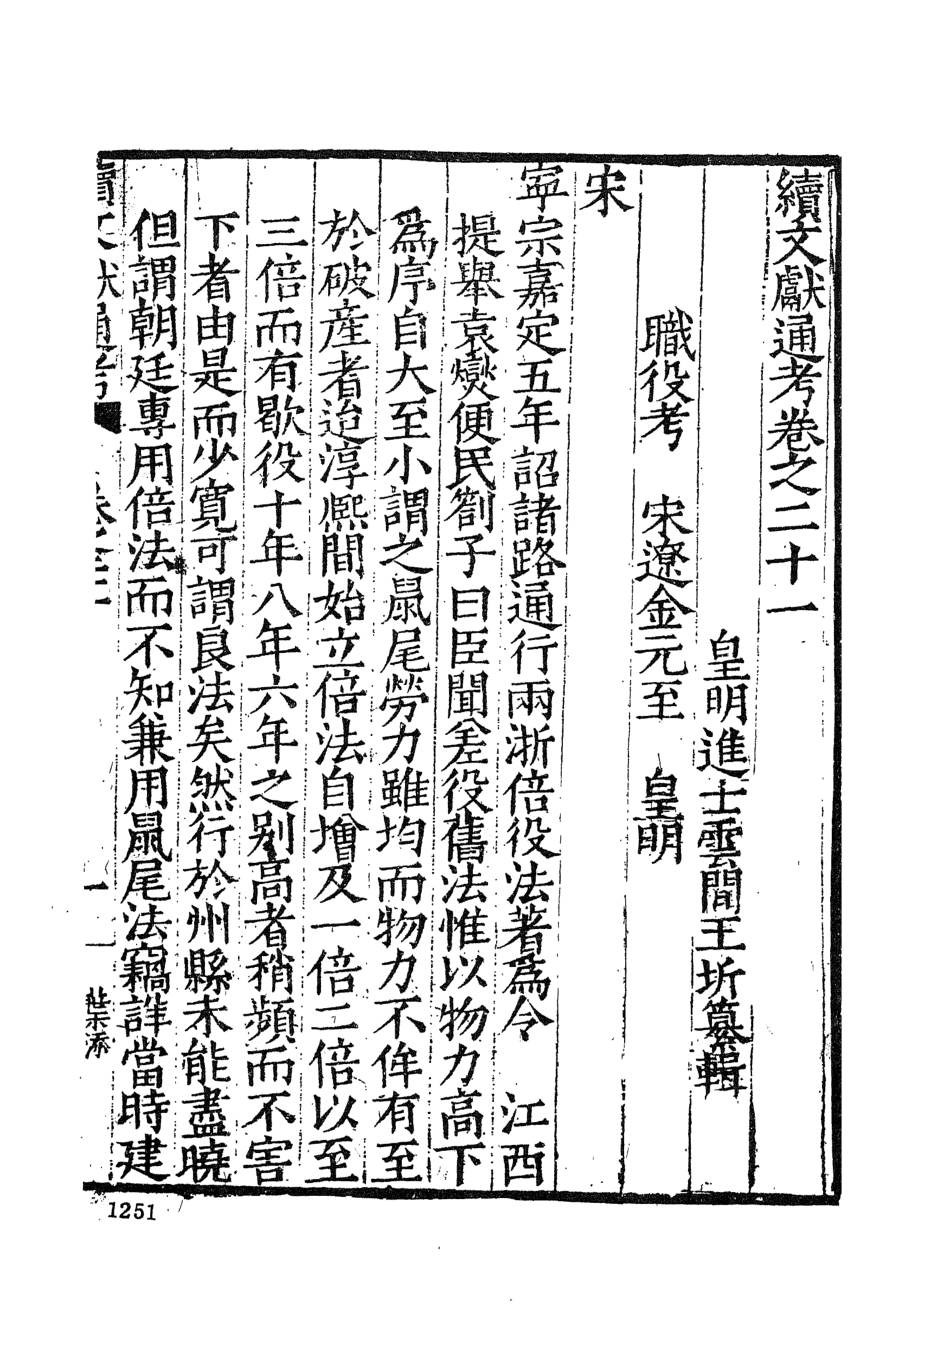 續文獻通考卷之二十一
皇明進士雲間王圻纂輯
職役考　宋遼金元至　皇明
宋
寕宗嘉定五年詔諸路通行兩浙倍役法著爲令　江西
提舉袁燮便民劄子曰臣聞差役舊法惟以物力高下
爲序自大至小謂之鼠尾勞力雖均而物力不侔有至
於破産者迨淳熙間始立倍法自增及一倍二倍以至
三倍而有歇役十年八年六年之别高者稍頻而不害
下者由是而少寬可謂良法矣然行於州縣未能盡曉
但謂朝廷專用倍法而不知兼用鼠尾法竊詳當時建
續文獻通考
一
1251